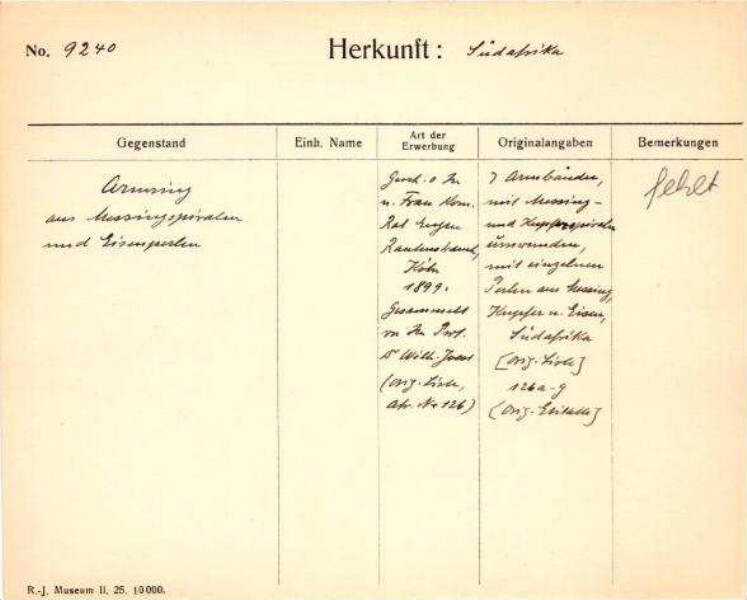 No. 9240 Herkunft: Südafrika
Gegenstand
Einh. Name
Art der
Erwerbung
Originalangaben
Bemerkungen
Armring
aus Messingspiralen
und Eisenperlen
Gesch. v. Hr.
u. Frau Kom.
Rat Eugen
Rautenstrauch,
Köln
1899.
Gesammelt
von Hr. Prof.
Dr Wilh. Joest
(Orig. Liste,
Afr. No 126)
7 Armbänder,
mit Messing-
und Kupferspiralen
umwunden,
mit einzelnen
Perlen aus Messing,
Kupfer u. Eisen,
Südafrika
[Orig. Liste]
126a-g
[Orig. Etikette]
fehlt
R.-J. Museum II. 25. 10000.